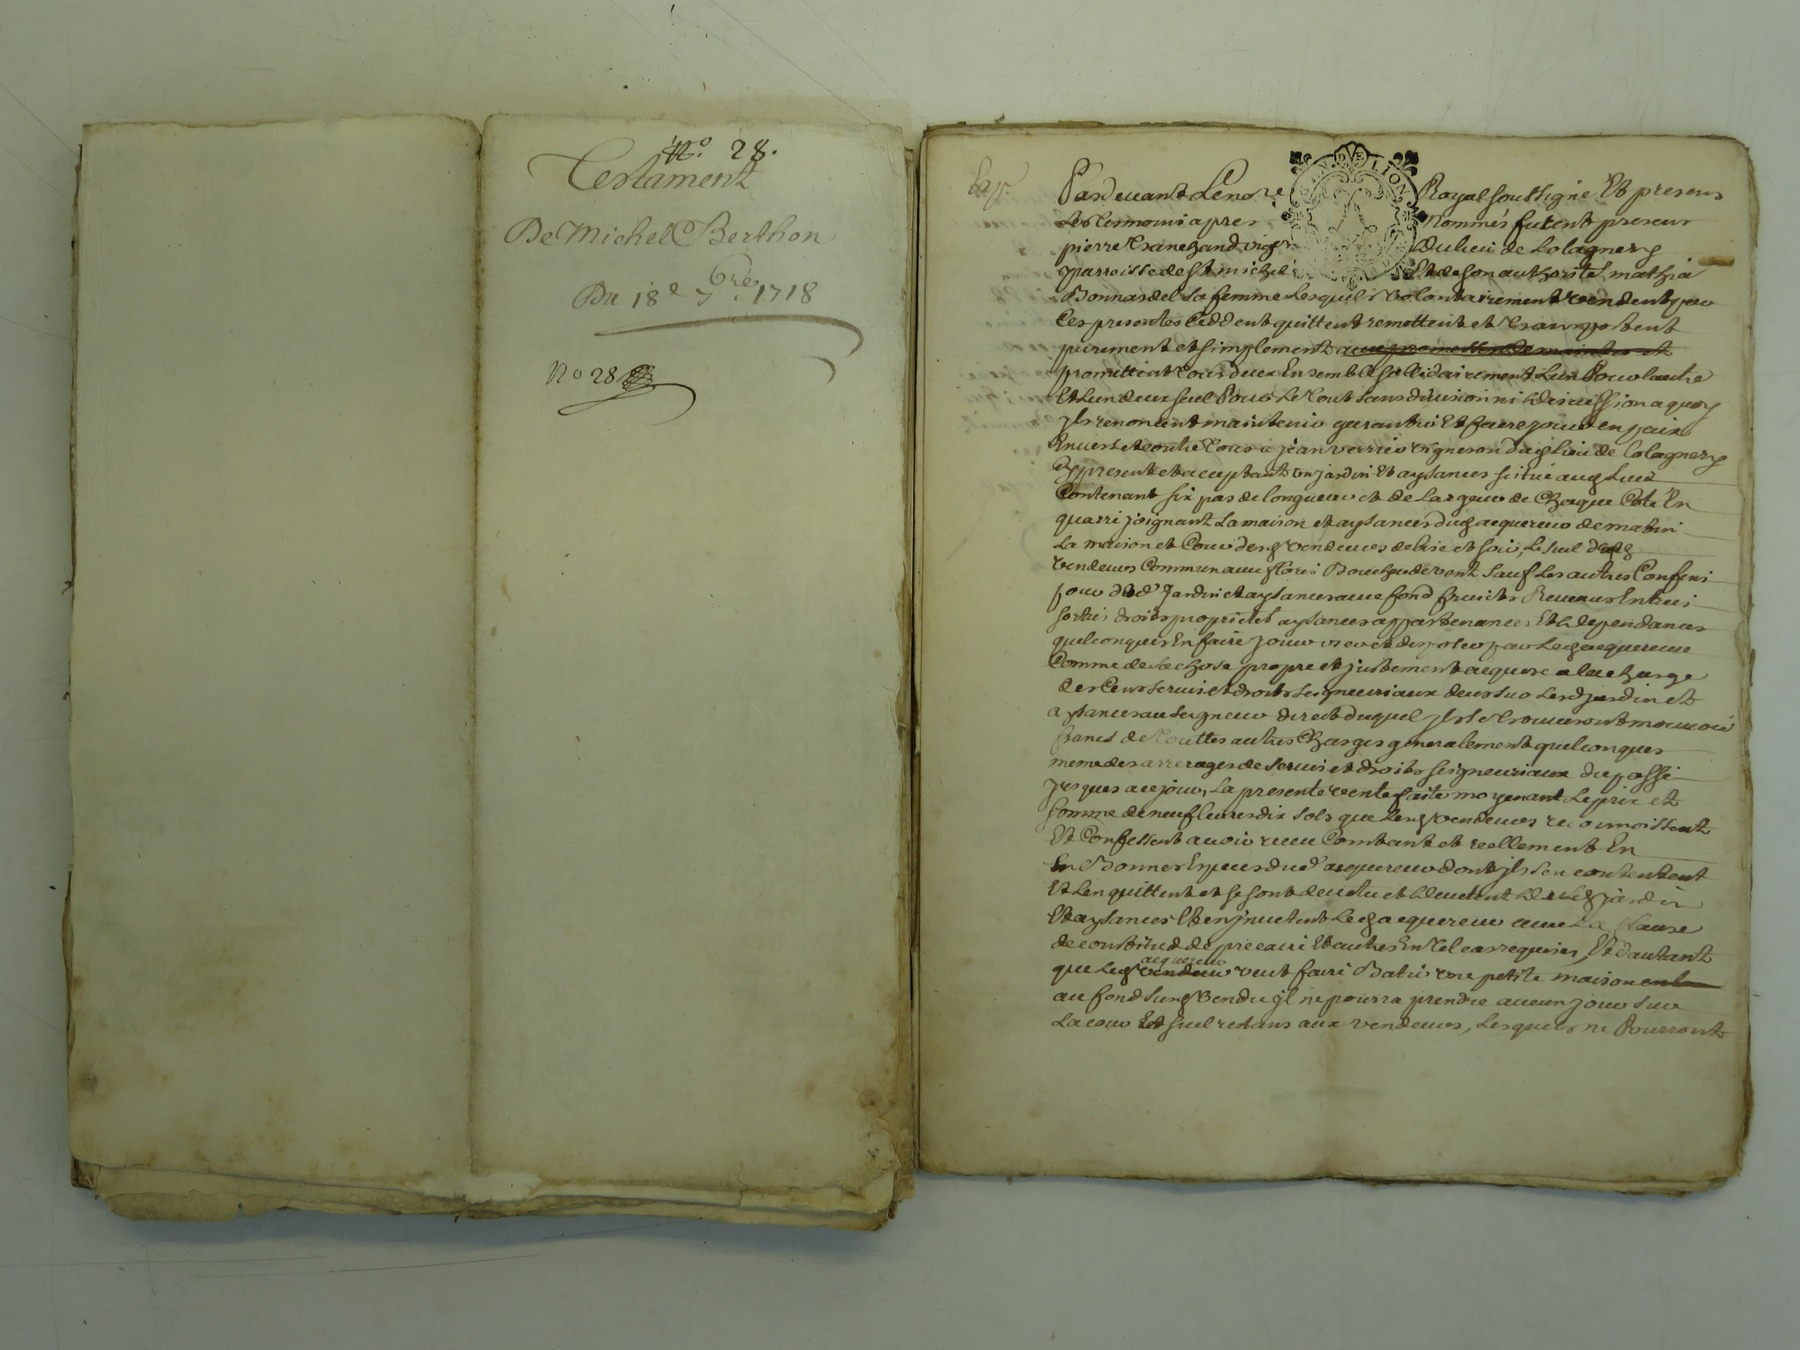 No. 28.
Testament
De Michel Berthon
Du 18e 7bres. 1718
No 28
Exp.
GEN. DE LION
Pardevant Le no.re Royal soussigné Et presens
Les tesmoins apres Nommés furent presens
pierre vign. Du lieu de Colagnery
parroisse de St michel Et de son authorité mathia
Bonnardel sa femme Lesquels volontairement vendent par
Ces presentes Ceddent quittent remettent et transportent
purement et simplement avec promesse de maintenir et
promettent tous deux Ensemble sollidairement L'un Pour lautre
Et L'un deux seul Pour Le tout sans division ni discussion a quoy
Jls renoncent maintenir garantir Et faire jouir en paix
Envers et contre tous a jean verrier vigneron dud lieu de Colagnery
Cy present et acceptant un jardin Et aysances situé aud Lieu
Contenant six pas de longueur et de Largeur de Chaque Coté En
quarré joignant La maison et aysances dud acquereur de matin
La maison et Cour desd vendeurs de bise et soir, Le sueil desd
vendeurs Commun avec Bouchu de vent sauf Les autres Confins
pour dud Jardin et aysances avec fond fruicts Revenus Entrées
sorties droits proprietés aysances appartenances Et dependances
quelconques En faire jouir user et disposer par Led acquereur
Comme de sa chose propre et justement acquise a la charge
des Cens servis et droits seigneuriaux deus sur Led jardin et
aysances au seigneur direct duquel Jls se trouveront mouvoir
francs de touttes autres Charges generalement quelconques
meme des arrerages de servis et droits seigneuriaux du passé
Jusques a ce jour, La presente vente faite moyenant Le prix et
somme de neuf livres dix sols que Lesd vendeurs reconnoissent
Et Confessent avoir receu Comtant et reellement En
En Bonnes Especes dud acquereur dont jls s'en contentent
Et Len quittent et se sont devetu et devetent dud jardin
Et aysances Et en jnvetent Led acquereur avec La Clause
de constitut de precaire Et autres En tel cas requises, Et d'autant
que Led vendeur acquereur veut faire Batir une petite maison en la
au fond susd Vendu jl ne pourra prendre aucun jour sur
La cour Et sueil restans aux vendeurs, Lesquels ne Pourront